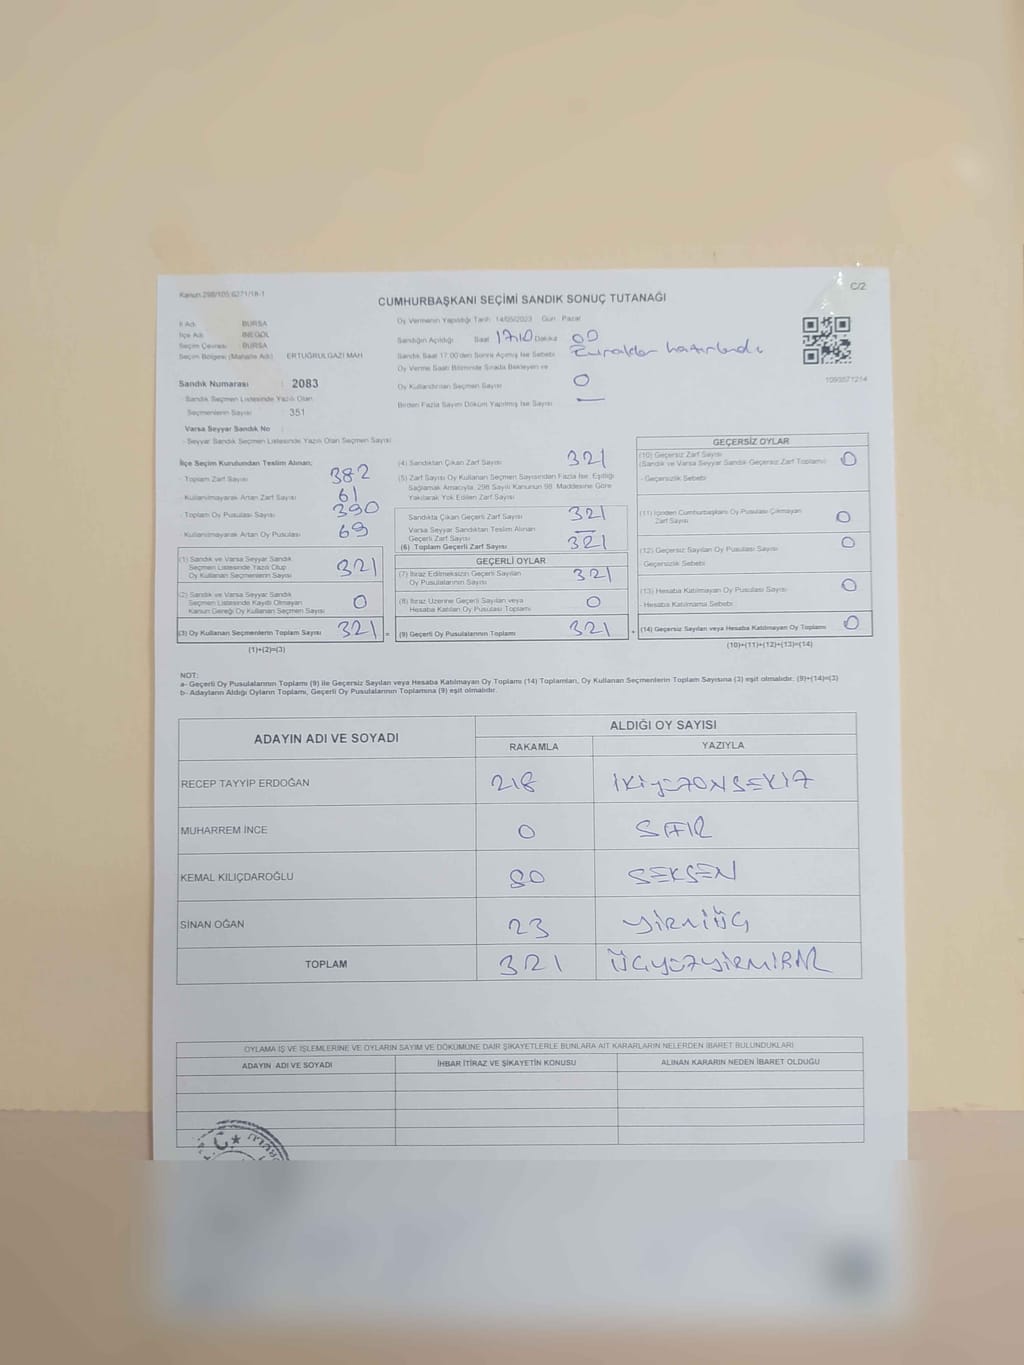 Kanun 298/105 6271/18-1
C/2
CUMHURBAŞKANI SEÇİMİ SANDIK SONUÇ TUTANAĞI
İl Adı BURSA
İlçe Adı İNEGÖL
Seçim Çevresi BURSA
Seçim Bölgesi (Mahalle Adı) ERTUĞRULGAZİ MAH
Sandık Numarası : 2083
- Sandık Seçmen Listesinde Yazılı Olan
Seçmenlerin Sayısı : 351
Varsa Seyyar Sandık No :
- Seyyar Sandık Seçmen Listesinde Yazılı Olan Seçmen Sayısı
Oy Vermenin Yapıldığı Tarih 14/05/2023 Gün Pazar
Sandığın Açıldığı Saat 17:10 Dakika 00
Sandık Saat 17:00'den Sonra Açılmış İse Sebebi
Oy Verme Saati Bitiminde Sırada Bekleyen ve
Oy Kullandırılan Seçmen Sayısı 0
Birden Fazla Sayım Döküm Yapılmış İse Sayısı —
1093571214
İlçe Seçim Kurulundan Teslim Alınan;
- Toplam Zarf Sayısı 382
- Kullanılmayarak Artan Zarf Sayısı 61
- Toplam Oy Pusulası Sayısı 390
- Kullanılmayarak Artan Oy Pusulası 69
(1) Sandık ve Varsa Seyyar Sandık
Seçmen Listesinde Yazılı Olup
Oy Kullanan Seçmenlerin Sayısı 321
(2) Sandık ve Varsa Seyyar Sandık
Seçmen Listesinde Kayıtlı Olmayan
Kanun Gereği Oy Kullanan Seçmen Sayısı 0
(3) Oy Kullanan Seçmenlerin Toplam Sayısı 321 =
(1)+(2)=(3)
(4) Sandıktan Çıkan Zarf Sayısı 321
(5) Zarf Sayısı Oy Kullanan Seçmen Sayısından Fazla İse, Eşitliği
Sağlamak Amacıyla, 298 Sayılı Kanunun 98. Maddesine Göre
Yakılarak Yok Edilen Zarf Sayısı
Sandıkta Çıkan Geçerli Zarf Sayısı 321
Varsa Seyyar Sandıktan Teslim Alınan
Geçerli Zarf Sayısı —
(6) Toplam Geçerli Zarf Sayısı 321
GEÇERLİ OYLAR
(7) İtiraz Edilmeksizin Geçerli Sayılan
Oy Pusulalarının Sayısı 321
(8) İtiraz Üzerine Geçerli Sayılan veya
Hesaba Katılan Oy Pusulası Toplamı 0
(9) Geçerli Oy Pusulalarının Toplamı 321 +
GEÇERSİZ OYLAR
(10) Geçersiz Zarf Sayısı
(Sandık ve Varsa Seyyar Sandık Geçersiz Zarf Toplamı) 0
- Geçersizlik Sebebi
(11) İçinden Cumhurbaşkanı Oy Pusulası Çıkmayan
Zarf Sayısı 0
(12) Geçersiz Sayılan Oy Pusulası Sayısı 0
- Geçersizlik Sebebi
(13) Hesaba Katılmayan Oy Pusulası Sayısı 0
- Hesaba Katılmama Sebebi
(14) Geçersiz Sayılan veya Hesaba Katılmayan Oy Toplamı 0
(10)+(11)+(12)+(13)=(14)
NOT:
a- Geçerli Oy Pusulalarının Toplamı (9) ile Geçersiz Sayılan veya Hesaba Katılmayan Oy Toplamı (14) Toplamları, Oy Kullanan Seçmenlerin Toplam Sayısına (3) eşit olmalıdır. (9)+(14)=(3)
b- Adayların Aldığı Oyların Toplamı, Geçerli Oy Pusulalarının Toplamına (9) eşit olmalıdır.
ADAYIN ADI VE SOYADI ALDIĞI OY SAYISI
RAKAMLA YAZIYLA
RECEP TAYYİP ERDOĞAN 218 İKİYÜZONSEKİZ
MUHARREM İNCE 0 SIFIR
KEMAL KILIÇDAROĞLU 80 SEKSEN
SİNAN OĞAN 23 YİRMİÜÇ
TOPLAM 321 ÜÇYÜZYİRMİBİR
OYLAMA İŞ VE İŞLEMLERİNE VE OYLARIN SAYIM VE DÖKÜMÜNE DAİR ŞİKAYETLERLE BUNLARA AİT KARARLARIN NELERDEN İBARET BULUNDUKLARI
ADAYIN ADI VE SOYADI İHBAR İTİRAZ VE ŞİKAYETİN KONUSU ALINAN KARARIN NEDEN İBARET OLDUĞU